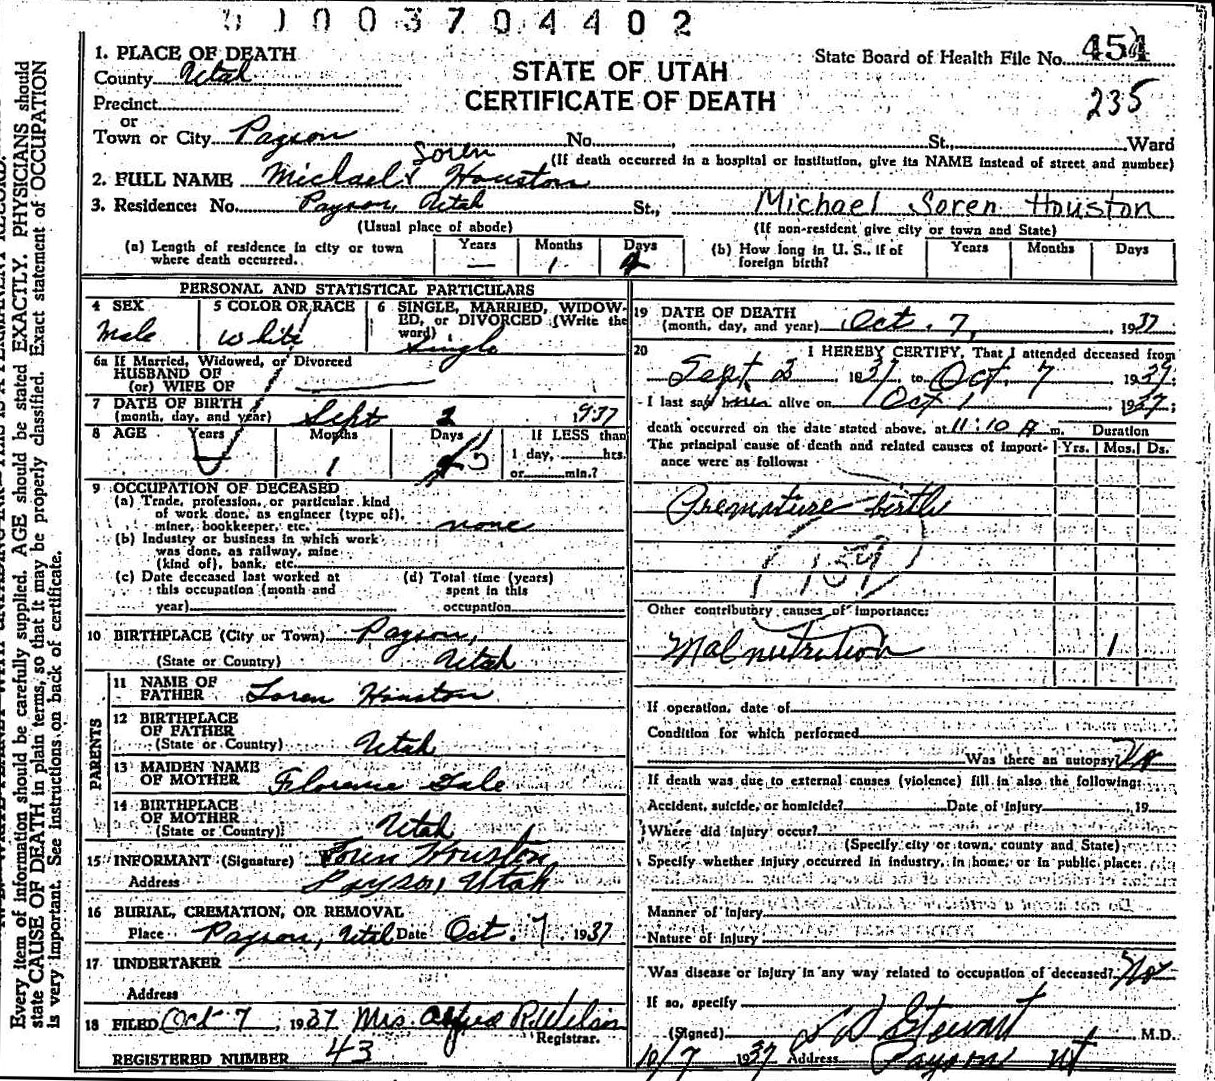 0003704402
1. PLACE OF DEATH
County Utah
State Board of Health File No. 454
STATE OF UTAH
CERTIFICATE OF DEATH
235
Precinct
or
Town or City Payson No. St., Ward
(If death occurred in a hospital or institution, give its NAME instead of street and number)
Soren
2. FULL NAME Michael Houston
3. Residence: No. Payson, Utah St., Michael Soren Houston
(Usual place of abode) (If non-resident give city or town and State)
(a) Length of residence in city or town where death occurred. Years — Months 1 Days
(b) How long in U. S., if of foreign birth? Years Months Days
PERSONAL AND STATISTICAL PARTICULARS
4 SEX Male
5 COLOR OR RACE White
6 SINGLE, MARRIED, WIDOWED, or DIVORCED (Write the word) Single
6a If Married, Widowed, or Divorced
HUSBAND OF
(or) WIFE OF
7 DATE OF BIRTH
(month, day, and year) Sept 2 1937
8 AGE Years Months 1 Days 5 If LESS than
1 day, hrs.
or min.?
9 OCCUPATION OF DECEASED
(a) Trade, profession, or particular kind
of work done, as engineer (type of),
miner, bookkeeper, etc. none
(b) Industry or business in which work
was done, as railway, mine
(kind of), bank, etc.
(c) Date deceased last worked at
this occupation (month and
year)
(d) Total time (years)
spent in this
occupation
10 BIRTHPLACE (City or Town) Payson,
(State or Country) Utah
PARENTS
11 NAME OF
FATHER Loren Houston
12 BIRTHPLACE
OF FATHER
(State or Country) Utah
13 MAIDEN NAME
OF MOTHER Florence Gale
14 BIRTHPLACE
OF MOTHER
(State or Country) Utah
15 INFORMANT (Signature) Loren Houston
Address Payson, Utah
16 BURIAL, CREMATION, OR REMOVAL
Place Payson, Utah Date Oct. 7, 1937
17 UNDERTAKER
Address
18 FILED Oct 7, 1937 Mrs. R. Wilson
Registrar.
REGISTERED NUMBER 43
19 DATE OF DEATH
(month, day, and year) Oct. 7, 1937
20 I HEREBY CERTIFY, That I attended deceased from
Sept 2, 1937 to Oct. 7 1937
I last saw him alive on Oct 1 1937;
death occurred on the date stated above, at 11:10 A m. Duration
The principal cause of death and related causes of importance were as follows: Yrs. Mos. Ds.
Premature birth
159
Other contributory causes of importance:
Malnutrition 1
If operation, date of
Condition for which performed
Was there an autopsy No
If death was due to external causes (violence) fill in also the following:
Accident, suicide, or homicide? Date of injury , 19
Where did injury occur?
(Specify city or town, county and State)
Specify whether injury occurred in industry, in home, or in public place:
Manner of injury
Nature of injury
Was disease or injury in any way related to occupation of deceased? No
If so, specify
(Signed) L D Stewart M.D.
10/7 1937 Address Payson Ut
Every item of information should be carefully supplied. AGE should be stated EXACTLY. PHYSICIANS should
state CAUSE OF DEATH in plain terms, so that it may be properly classified. Exact statement of OCCUPATION
is very important. See instructions on back of certificate.